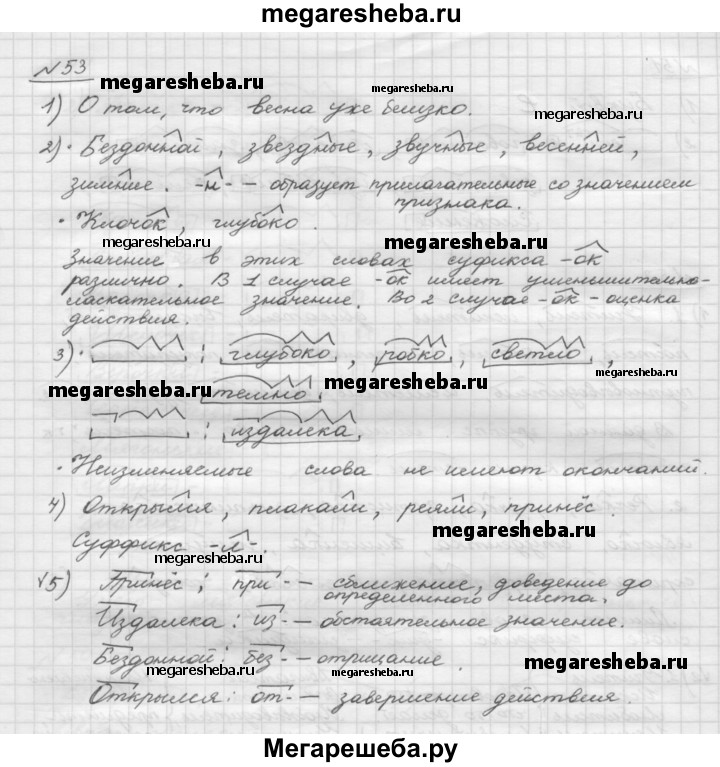 megaresheba.ru
№53
megaresheba.ru
megaresheba.ru
1) О том, что весна уже близко.
megaresheba.ru
2)· Бездонной, звездные, звучные, весенней,
зимние. -н- – образует прилагательные со значением
признака.
· Клочок, глубоко.
megaresheba.ru
megaresheba.ru
Значение в этих словах суфикса -ок
различно. В 1 случае -ок имеет уменьшительно-
ласкательное значение. Во 2 случае -ок- оценка
действия.
3)· : глубоко, робко, светло,
megaresheba.ru
megaresheba.ru
megaresheba.ru
темно.
: издалека.
· Неизменяемые слова не имеют окончаний.
4) Открылся, плакали, реяли, принёс.
megaresheba.ru
Суффикс -л-.
megaresheba.ru
5) Принёс; при- – сближение, доведение до
определенного места.
Издалека: из- – обстоятельное значение.
Бездонной: без- – отрицание.
megaresheba.ru
megaresheba.ru
Открылся: от- – завершение действия.
Мегарешеба.ру